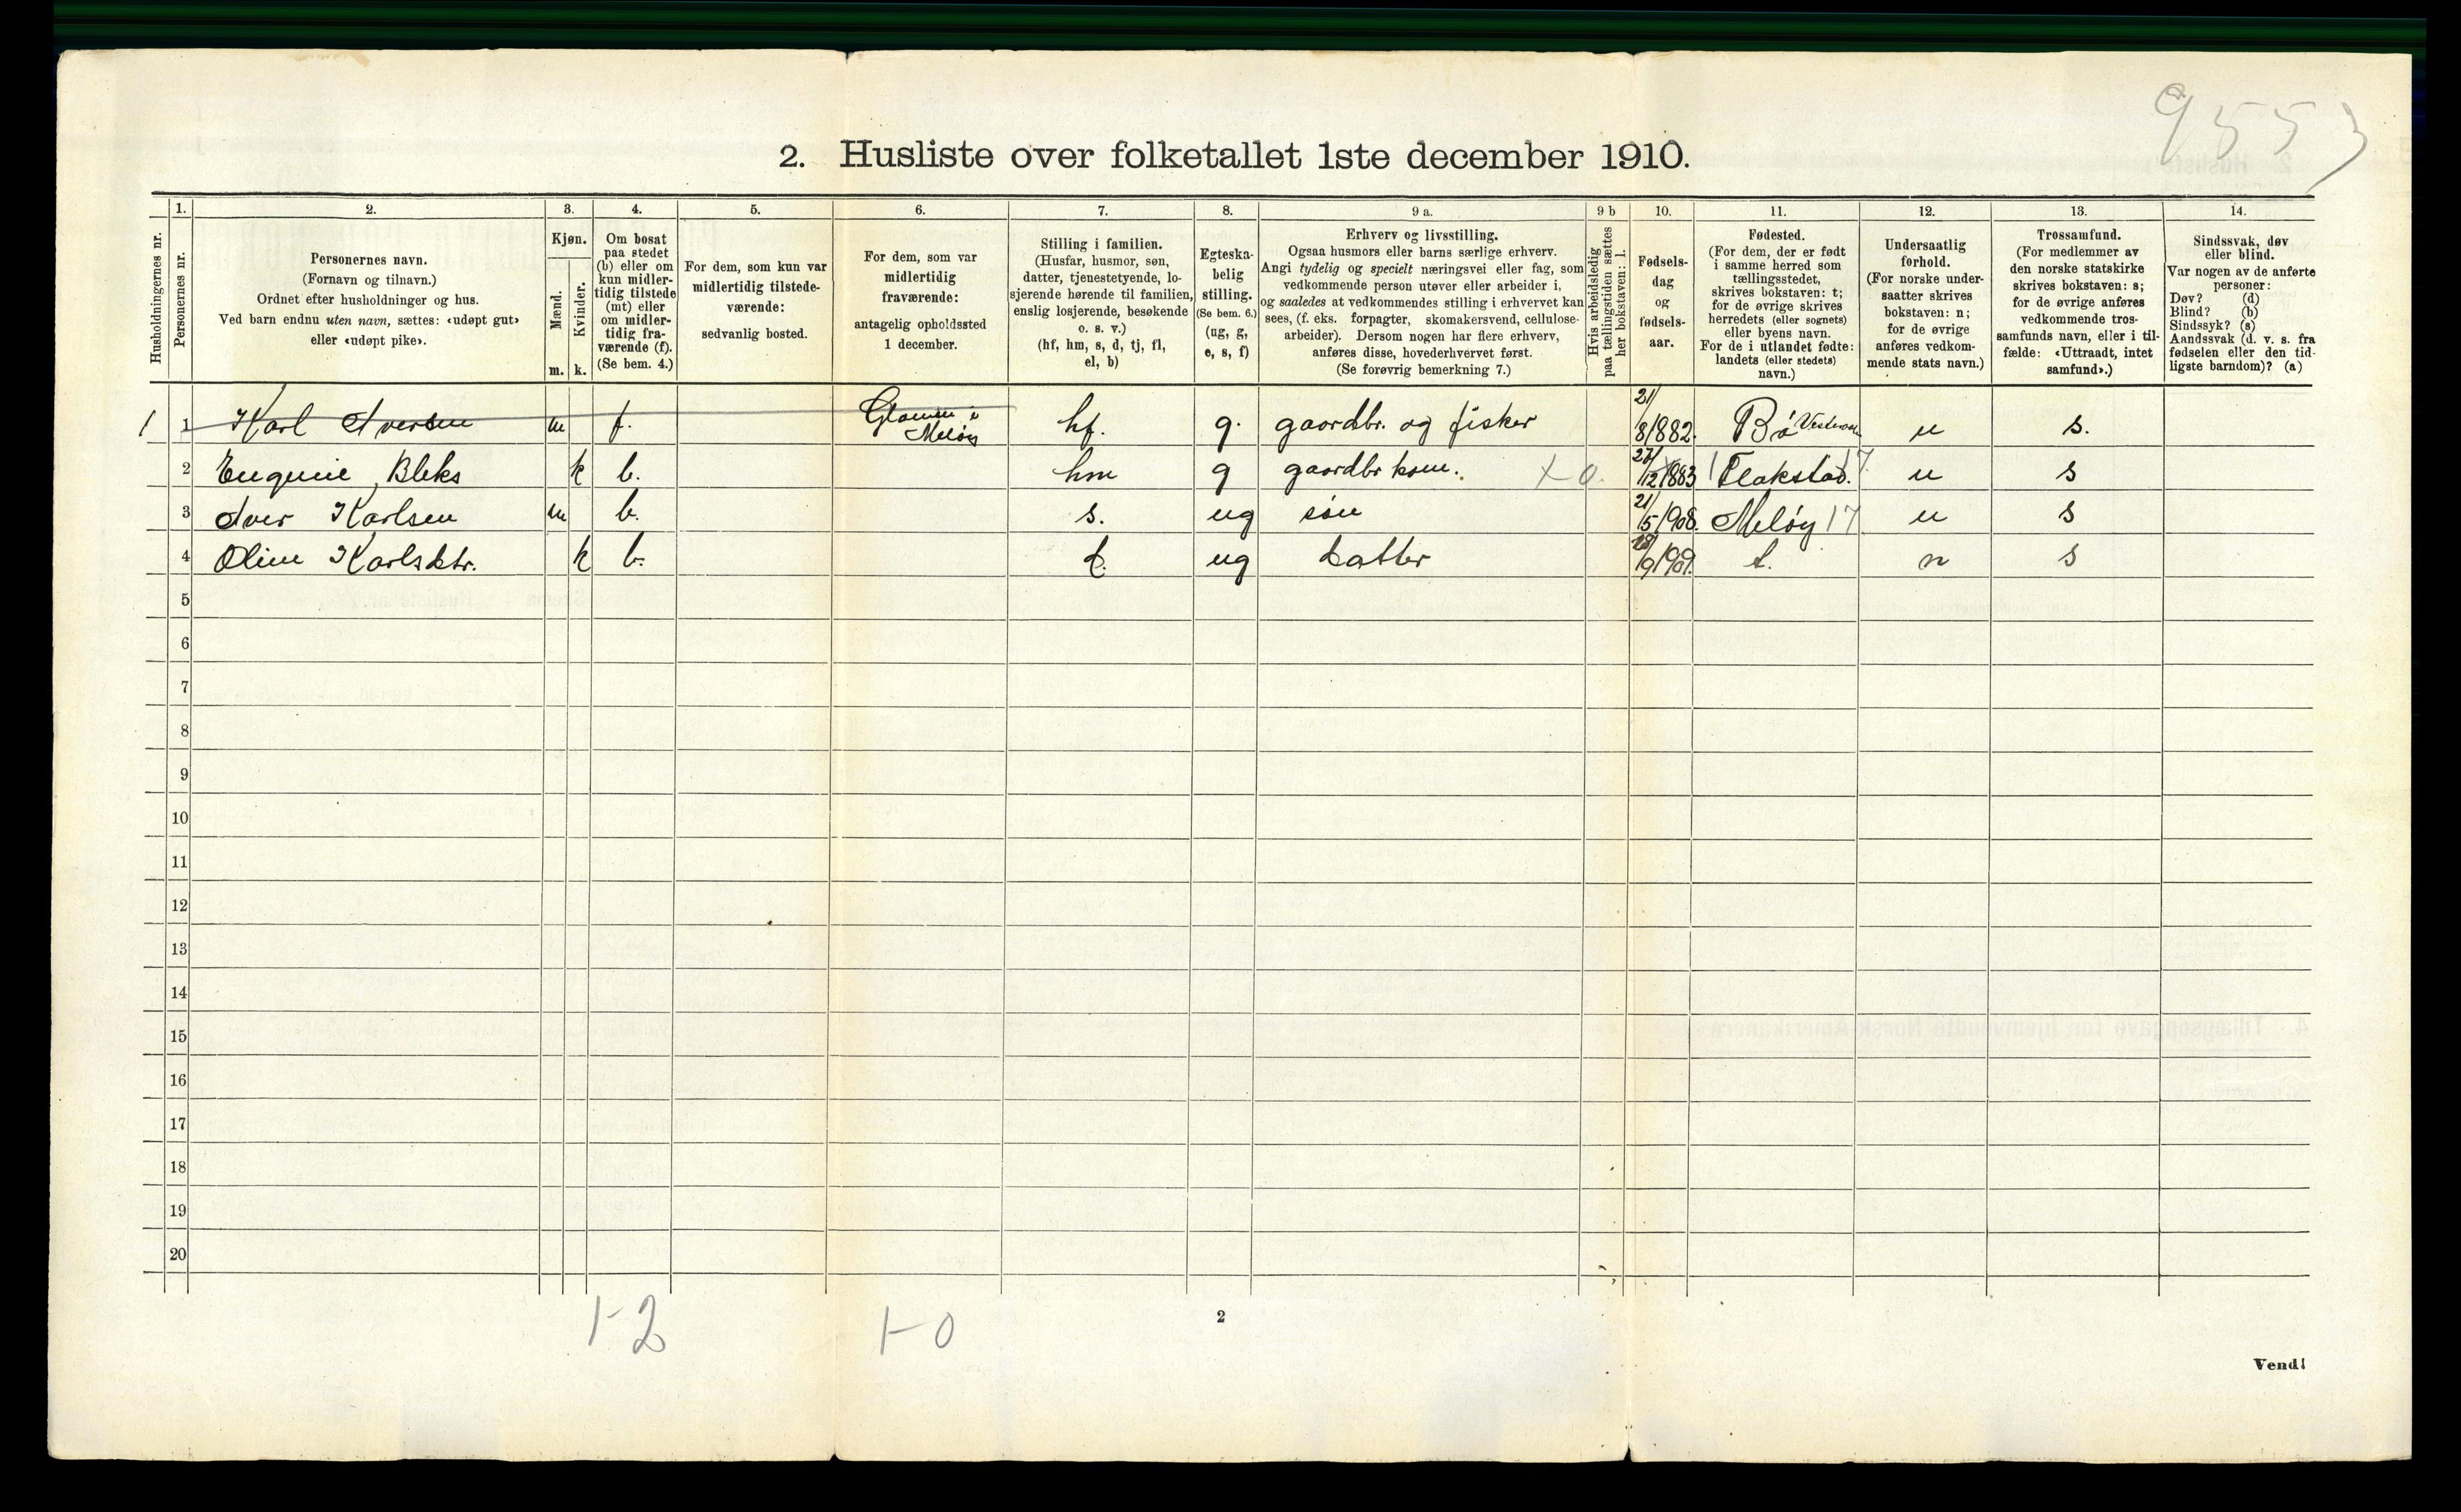 9553
2. Husliste over folketallet 1ste december 1910.
Husholdningernes nr.
1.
Personernes nr.
2.
Personernes navn.
(Fornavn og tilnavn.)
Ordnet efter husholdninger og hus.
Ved barn endnu uten navn, sættes: «udøpt gut»
eller «udøpt pike».
3.
Kjøn.
Mænd.
Kvinder.
m. k.
4.
Om bosat
paa stedet
(b) eller om
kun midler-
tidig tilstede
(mt) eller
om midler-
tidig fra-
værende (f).
(Se bem. 4.)
5.
For dem, som kun var
midlertidig tilstede-
værende:
sedvanlig bosted.
6.
For dem, som var
midlertidig
fraværende:
antagelig opholdssted
1 december.
7.
Stilling i familien.
(Husfar, husmor, søn,
datter, tjenestetyende, lo-
sjerende hørende til familien,
enslig losjerende, besøkende
o. s. v.)
(hf, hm, s, d, tj, fl,
el, b)
8.
Egteska-
belig
stilling.
(Se bem. 6.)
(ug, g,
e, s, f)
9 a.
Erhverv og livsstilling.
Ogsaa husmors eller barns særlige erhverv.
Angi tydelig og specielt næringsvei eller fag, som
vedkommende person utøver eller arbeider i,
og saaledes at vedkommendes stilling i erhvervet kan
sees, (f. eks. forpagter, skomakersvend, cellulose-
arbeider). Dersom nogen har flere erhverv,
anføres disse, hovederhvervet først.
(Se forøvrig bemerkning 7.)
9 b
Hvis arbeidsledig
paa tællingstiden sættes
her bokstaven: l.
10.
Fødsels-
dag
og
fødsels-
aar.
11.
Fødested.
(For dem, der er født
i samme herred som
tællingsstedet,
skrives bokstaven: t;
for de øvrige skrives
herredets (eller sognets)
eller byens navn.
For de i utlandet fødte:
landets (eller stedets)
navn.)
12.
Undersaatlig
forhold.
(For norske under-
saatter skrives
bokstaven: n;
for de øvrige
anføres vedkom-
mende stats navn.)
13.
Trossamfund.
(For medlemmer av
den norske statskirke
skrives bokstaven: s;
for de øvrige anføres
vedkommende tros-
samfunds navn, eller i til-
fælde: «Uttraadt, intet
samfund».)
14.
Sindssvak, døv
eller blind.
Var nogen av de anførte
personer:
Døv? (d)
Blind? (b)
Sindssyk? (s)
Aandssvak (d. v. s. fra
fødselen eller den tid-
ligste barndom)? (a)
1 1 Karl Iversen m f. Glomen i Meløy hf. g. gaardbr. og fisker 21/8/882. Bø n s.
2 Eugenie Bleks k b. hm g gaardbr kone. x 0. 27/12/883 Flakstad. 17 n s
3 Iver Karlsen m b. s. ug søn 21/5/908. Meløy 17 n s
4 Oline Karlsdtr. k b. d. ug datter /9/909. t. n s
5
6
7
8
9
10
11
12
13
14
15
16
17
18
19
20
1-2 1-0
2
Vend!